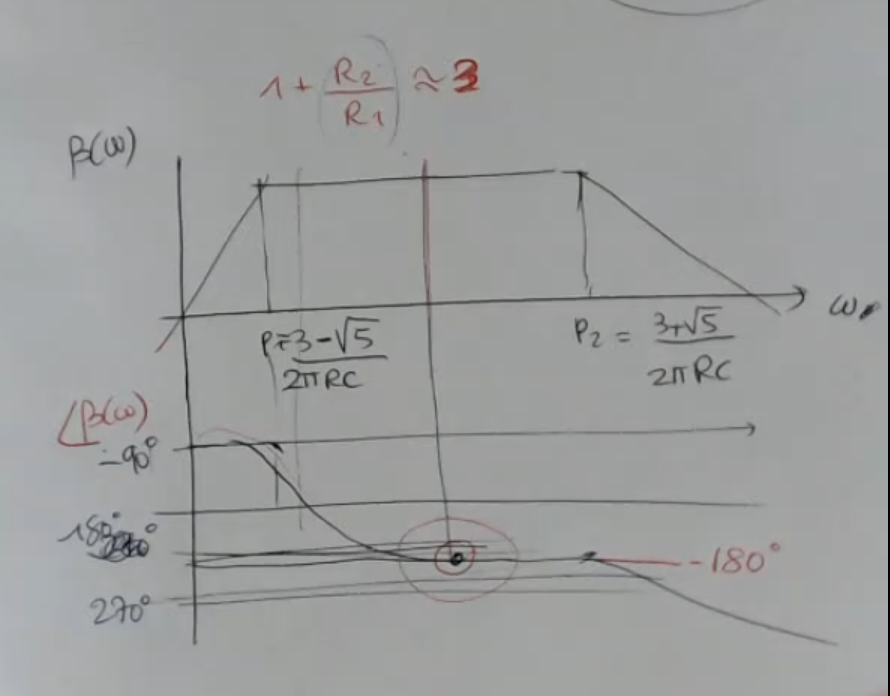 1 + R₂/R₁ ≈ 3
β(ω)
ω
P₁ = 3-√5/2πRC
P₂ = 3+√5/2πRC
∠β(ω)
-90°
180°
-180°
270°